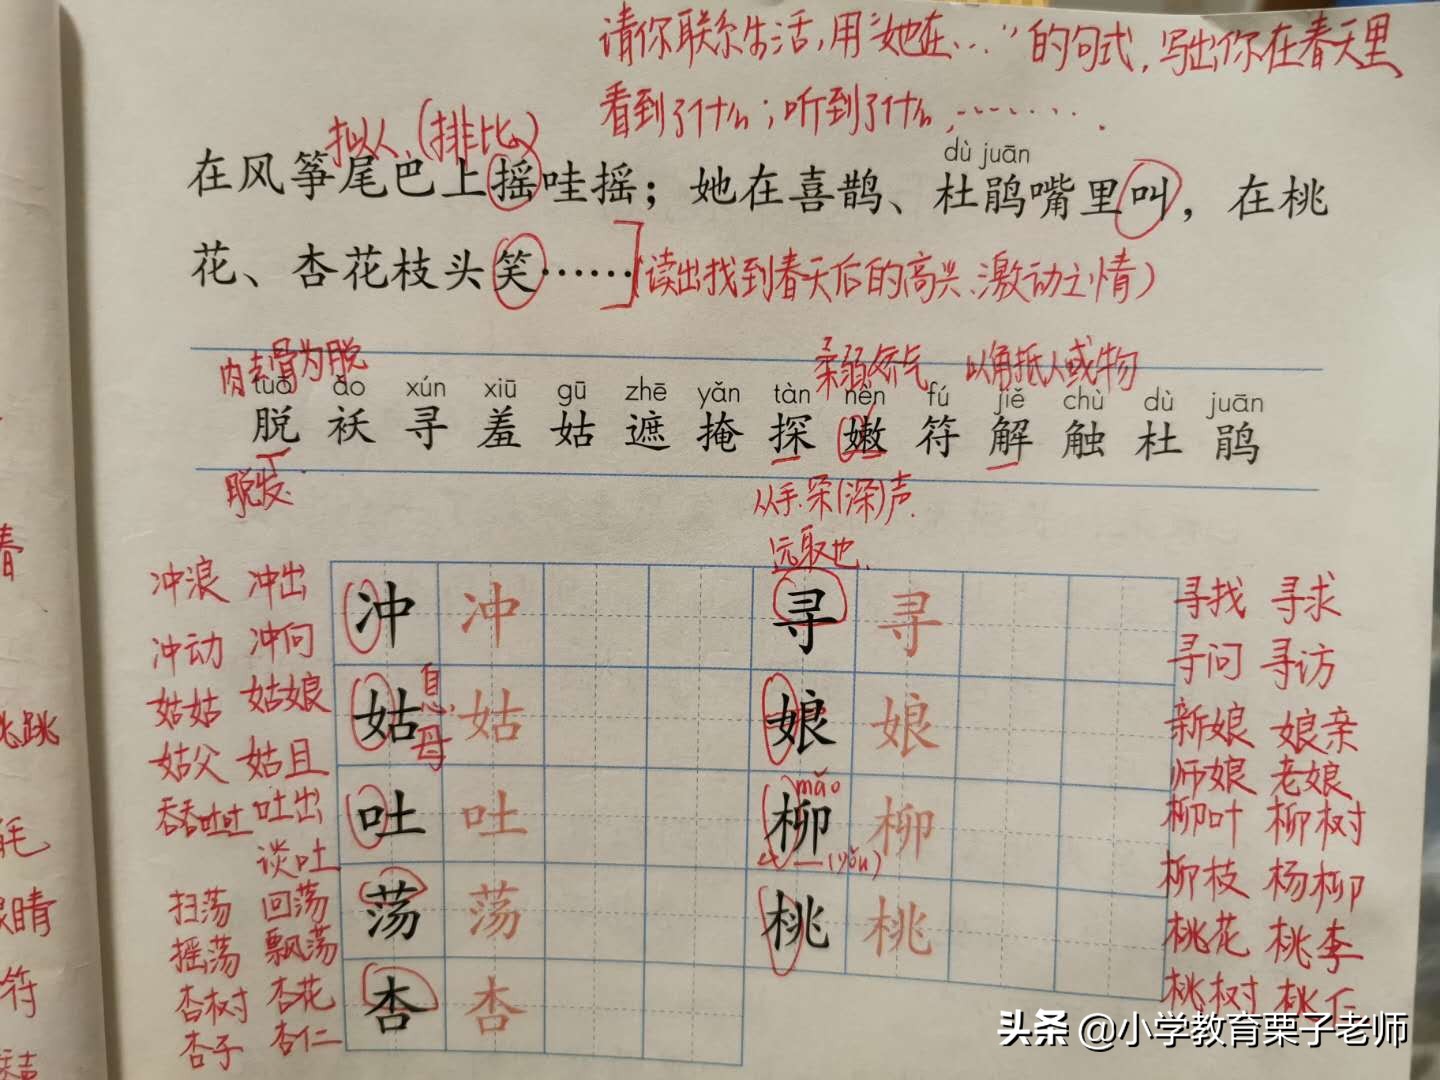 请你联系生活,用“她在……”的句式,写出你在春天里
看到了什么;听到了什么,…….
拟人、(排比)
dù juān
在风筝尾巴上摇哇摇；她在喜鹊、杜鹃嘴里叫，在桃
花、杏花枝头笑……
(读出找到春天后的高兴、激动之情)
肉去骨为脱
柔弱娇气
以角抵人或物
tuō ǎo xún xiū gū zhē yǎn tàn nèn fú jiě chù dù juān
脱 袄 寻 羞 姑 遮 掩 探 嫩 符 解 触 杜 鹃
脱发
从手.罙(深)声.
远取也.
冲浪 冲出
冲 冲
寻 寻
寻找 寻求
冲动 冲向
寻问 寻访
姑姑 姑娘
姑 姑
息
母
娘 娘
新娘 娘亲
姑父 姑且
师娘 老娘
吞吐 吐出
吐 吐
mǎo
柳 柳
(yǒu)
柳叶 柳树
谈吐
柳枝 杨柳
扫荡 回荡
荡 荡
桃 桃
桃花 桃李
摇荡 飘荡
杏树 杏花
杏 杏
桃树 桃仁
杏子 杏仁
春
跳
毛
眼睛
符
结
头条 @小学教育栗子老师